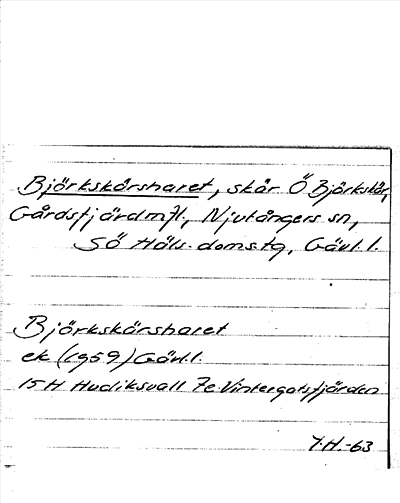 Björkskärsharet, skär Ö Björkskär,
Gårdsfjärdmfl., Njutångers sn,
SÖ Häls. doms.tg, Gävl.l.
Björkskärsharet
ek (1959) Gävl.l.
15H Hudiksvall 7e Vintergatsfjärden
J.H.-63